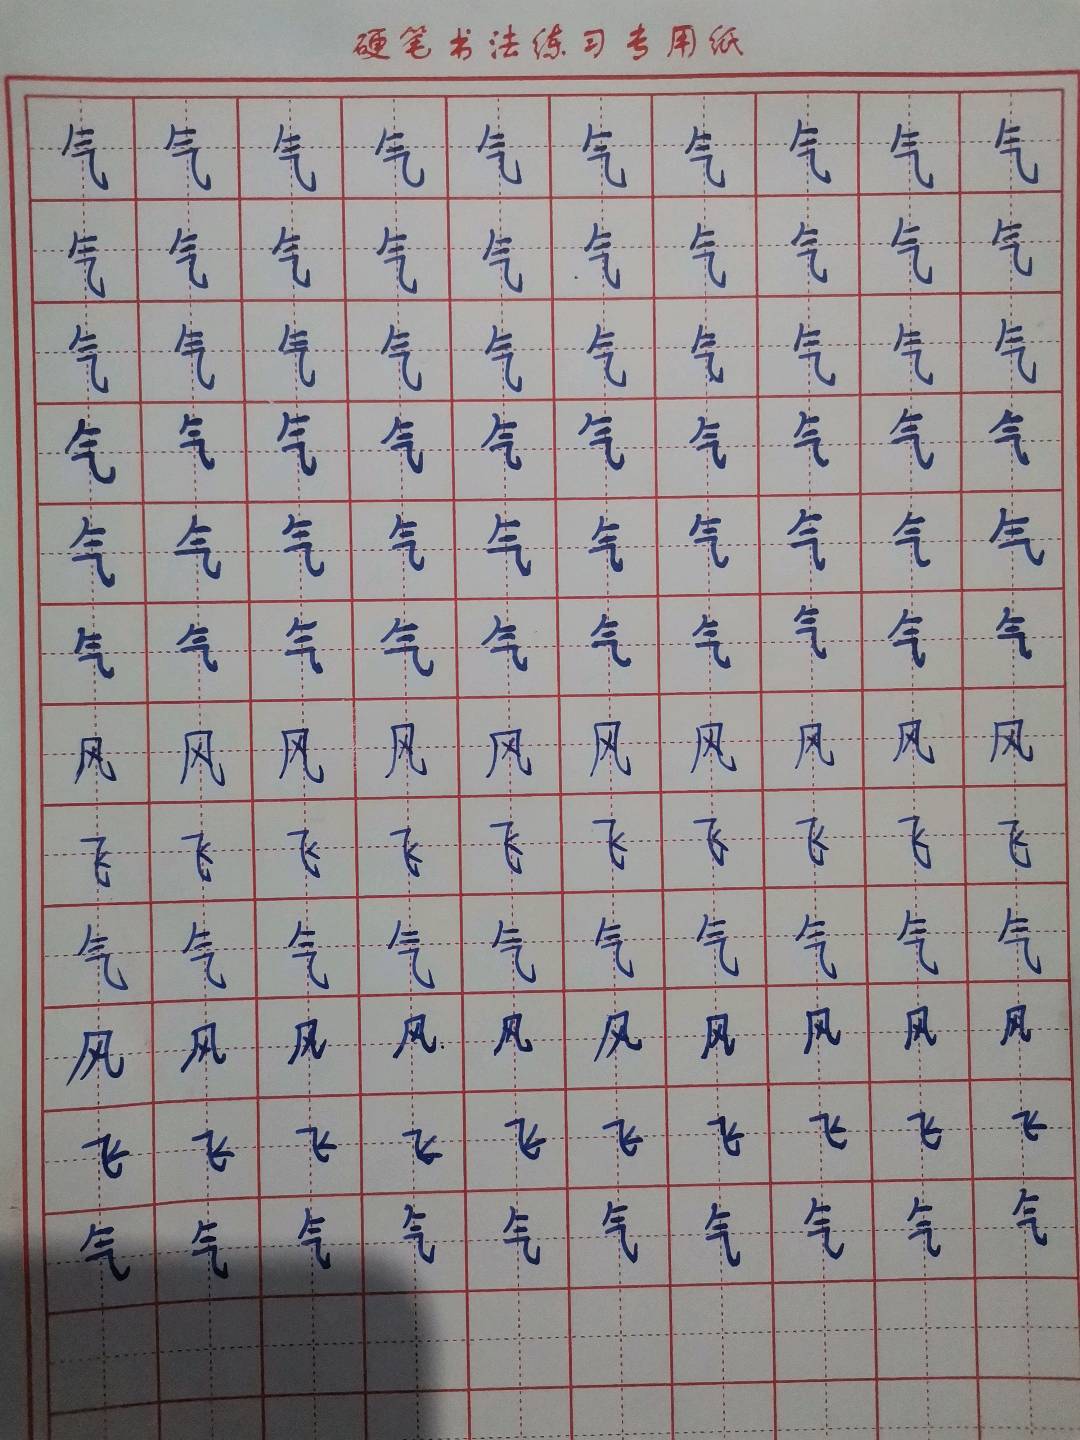 硬笔书法练习专用纸
气气气气气气气气气气
气气气气气气气气气气
气气气气气气气气气气
气气气气气气气气气气
气气气气气气气气气气
气气气气气气气气气气
风风风风风风风风风风
飞飞飞飞飞飞飞飞飞飞
气气气气气气气气气气
风风风风风风风风风风
飞飞飞飞飞飞飞飞飞飞
气气气气气气气气气气